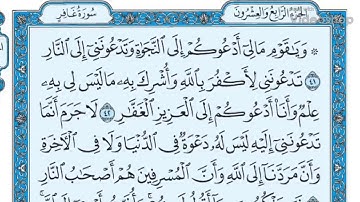 سُورَةُ غَافِرٍ
الجُزْءُ الرَّابِعُ وَالعِشْرُونَ
۞ وَيَٰقَوْمِ مَالِىٓ أَدْعُوكُمْ إِلَى ٱلنَّجَوٰةِ وَتَدْعُونَنِىٓ إِلَى ٱلنَّارِ
٤١ تَدْعُونَنِى لِأَكْفُرَ بِٱللَّهِ وَأُشْرِكَ بِهِۦ مَا لَيْسَ لِى بِهِۦ
عِلْمٌ وَأَنَا۠ أَدْعُوكُمْ إِلَى ٱلْعَزِيزِ ٱلْغَفَّٰرِ ٤٢ لَا جَرَمَ أَنَّمَا
تَدْعُونَنِىٓ إِلَيْهِ لَيْسَ لَهُۥ دَعْوَةٌ فِى ٱلدُّنْيَا وَلَا فِى ٱلْءَاخِرَةِ
وَأَنَّ مَرَدَّنَآ إِلَى ٱللَّهِ وَأَنَّ ٱلْمُسْرِفِينَ هُمْ أَصْحَٰبُ ٱلنَّارِ